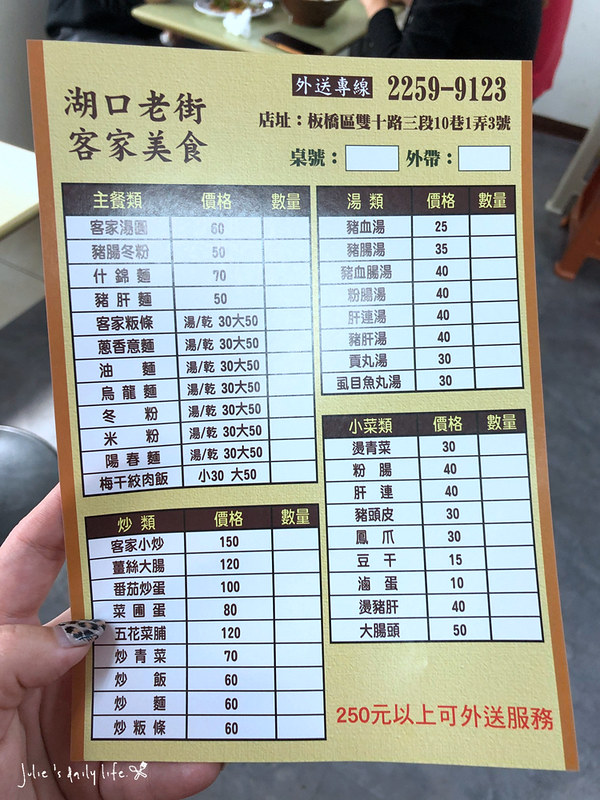 湖口老街
客家美食
外送專線 2259-9123
店址：板橋區雙十路三段10巷1弄3號
桌號： 外帶：
主餐類 價格 數量
客家湯圓 60
豬腸冬粉 50
什錦麵 70
豬肝麵 50
客家粄條 湯/乾 30大50
蔥香意麵 湯/乾 30大50
油麵 湯/乾 30大50
烏龍麵 湯/乾 30大50
冬粉 湯/乾 30大50
米粉 湯/乾 30大50
陽春麵 湯/乾 30大50
梅干絞肉飯 小30 大50
炒類 價格 數量
客家小炒 150
薑絲大腸 120
番茄炒蛋 100
菜圃蛋 80
五花菜脯 120
炒青菜 70
炒飯 60
炒麵 60
炒粄條 60
湯類 價格 數量
豬血湯 25
豬腸湯 35
豬血腸湯 40
粉腸湯 40
肝連湯 40
豬肝湯 40
貢丸湯 30
虱目魚丸湯 30
小菜類 價格 數量
燙青菜 30
粉腸 40
肝連 40
豬頭皮 30
鳳爪 30
豆干 15
滷蛋 10
燙豬肝 40
大腸頭 50
250元以上可外送服務
Julie's daily life.